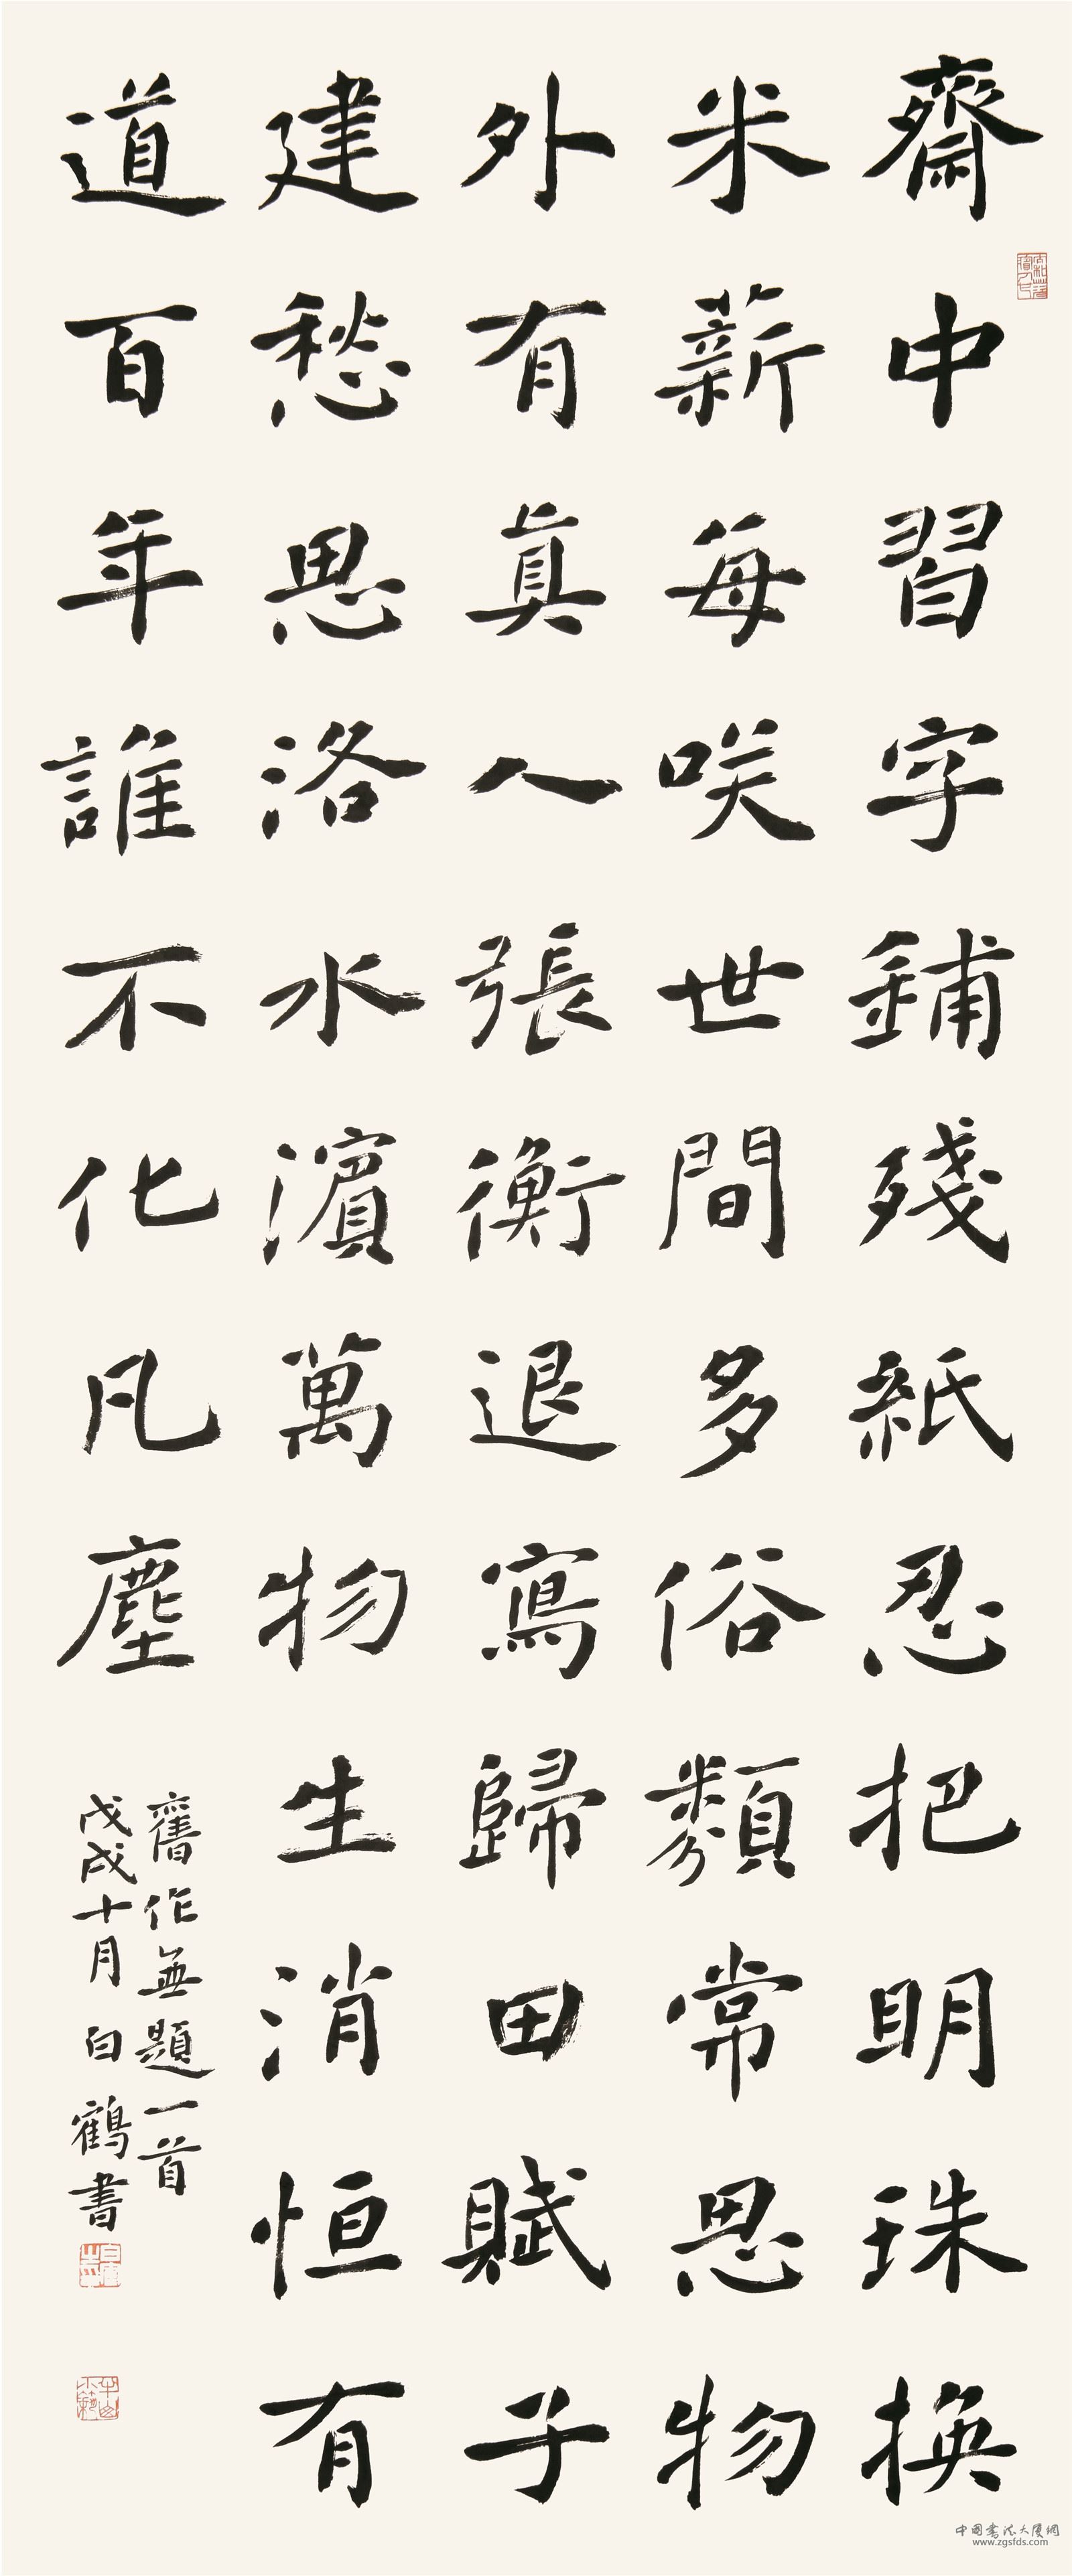 齋中習字鋪殘紙忍把明珠換
米薪每咲世間多俗類常思物
外有真人張衡退寫歸田賦子
建愁思洛水濱萬物生消恒有
道百年誰不化凡塵
舊作無題一首
戊戌十月白鶴書
中國書法大厦網
www.zgsfds.com